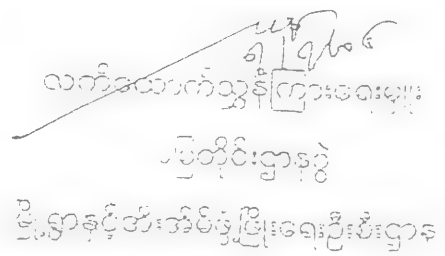 လက်ထောက်ညွှန်ကြားရေးမှူး
မြေတိုင်းဌာနခွဲ
မြို့ရွာနှင့်အိုးအိမ်ဖွံ့ဖြိုးရေးဦးစီးဌာန